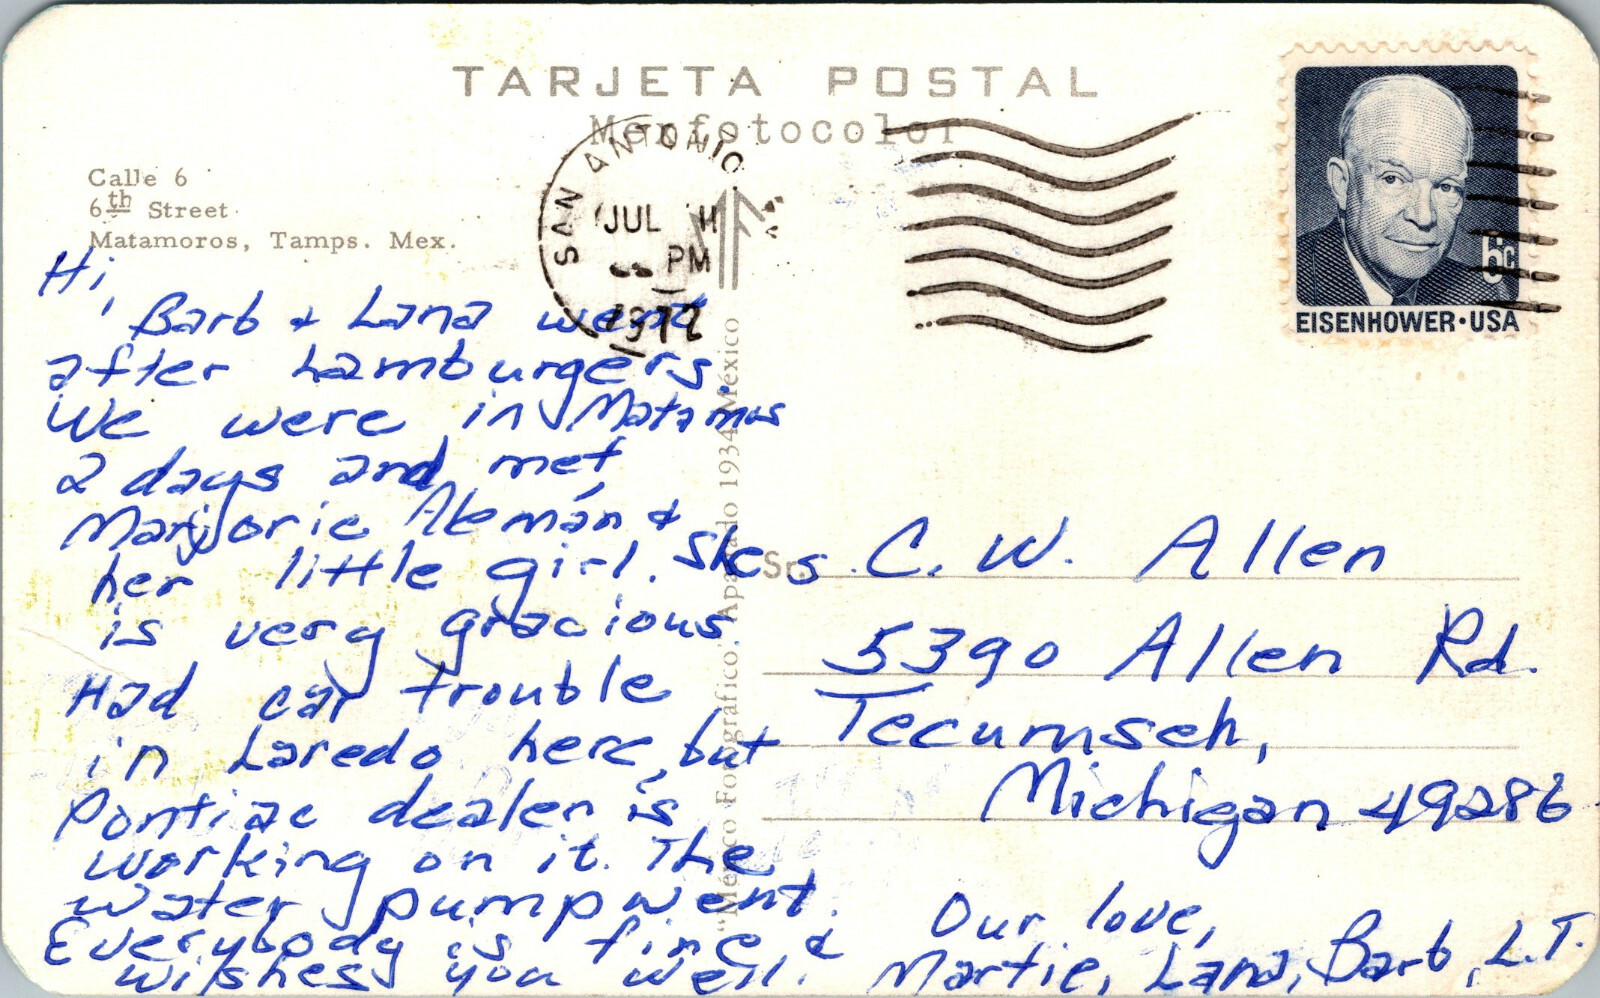 TARJETA POSTAL
Mexfotocolor
Calle 6
6th Street
Matamoros, Tamps. Mex.
SAN ANTONIO,
JUL
PM
1972
6c
EISENHOWER·USA
Hi,
Barb & Lana went
after hamburgers.
We were in Matamos
2 days and met
Marjorie Alemán &
her little girl. She
is very gracious.
Had car trouble
in Laredo here, but
Pontiac dealer is
working on it. The
water pump went.
Everybody is fine &
wishes you well.
"México Fotográfico", Apartado 1934, México
Sr.s C. W. Allen
5390 Allen Rd.
Tecumseh,
Michigan 49286
Our love,
Martie, Lana, Barb, L.T.